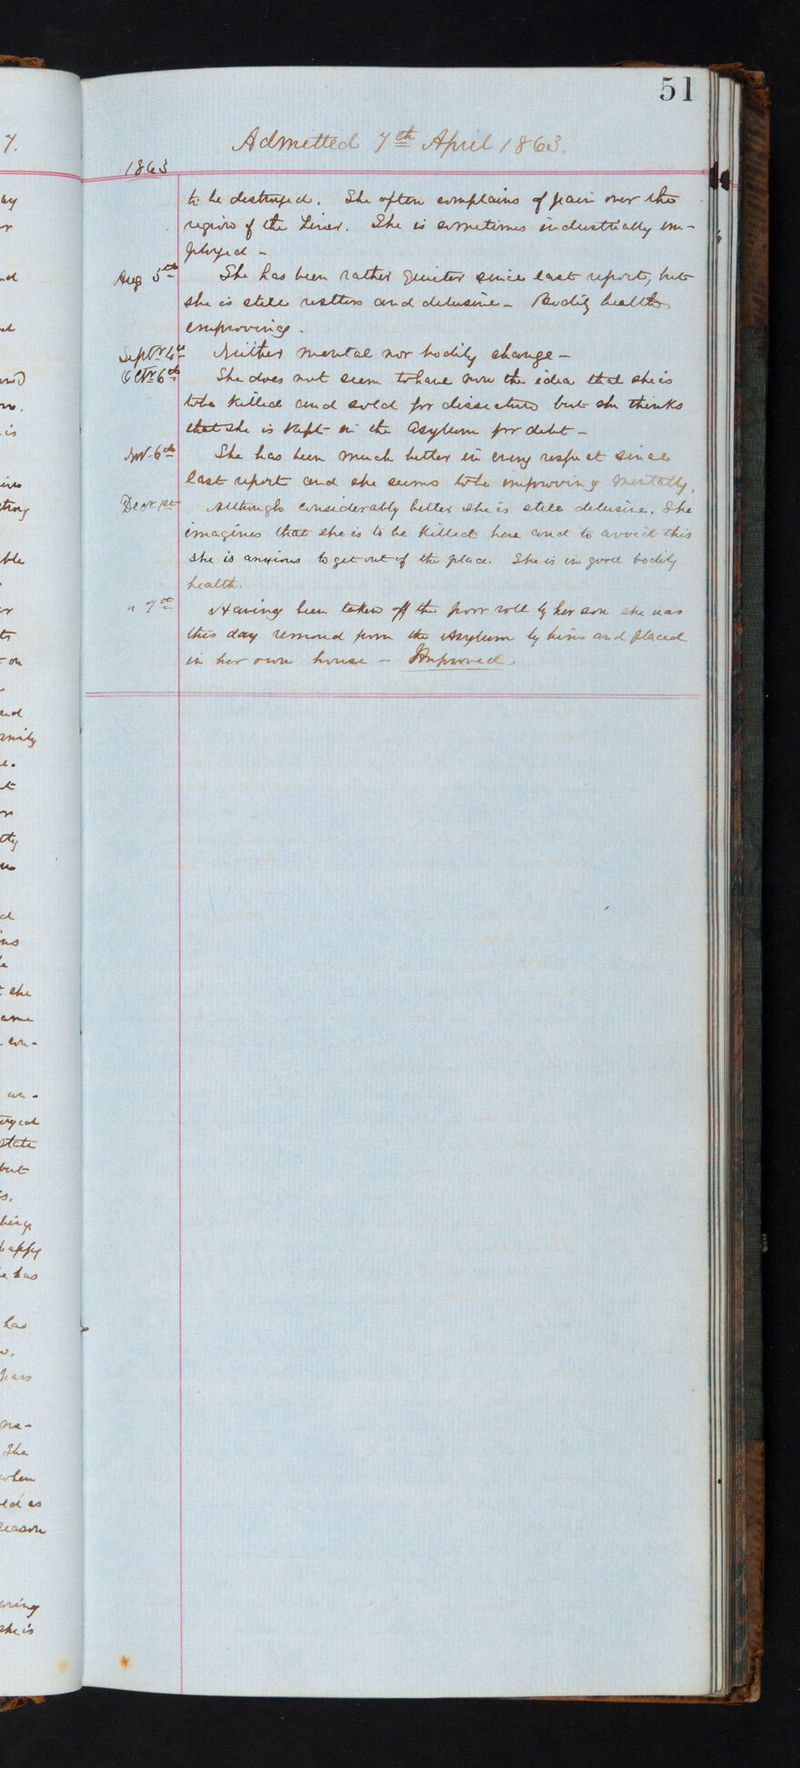 51
Admitted 7th April 1863.
1863
to be destroyed. She often complains of pain over the
region of the Liver. She is sometimes industrially em-
ployed -
Aug 5th She has been rather quieter since last report, but
she is still restless and delusive - Bodily health
improving.
Septr 4th Neither mental nor bodily change -
Octr 6th She does not seem to have now the idea that she is
to be killed and sold for dissection but she thinks
that she is kept in the asylum for debt -
Nov. 6th She has been much better in every respect since
last report and she seems to be improving mentally.
Decr 1st Although considerably better she is still delusive. She
imagines that she is to be killed here and to avoid this
she is anxious to get out of the place. She is in good bodily
health.
" 7th Having been taken off the poor roll by her son she was
this day removed from the Asylum by him and placed
in her own house - Improved.